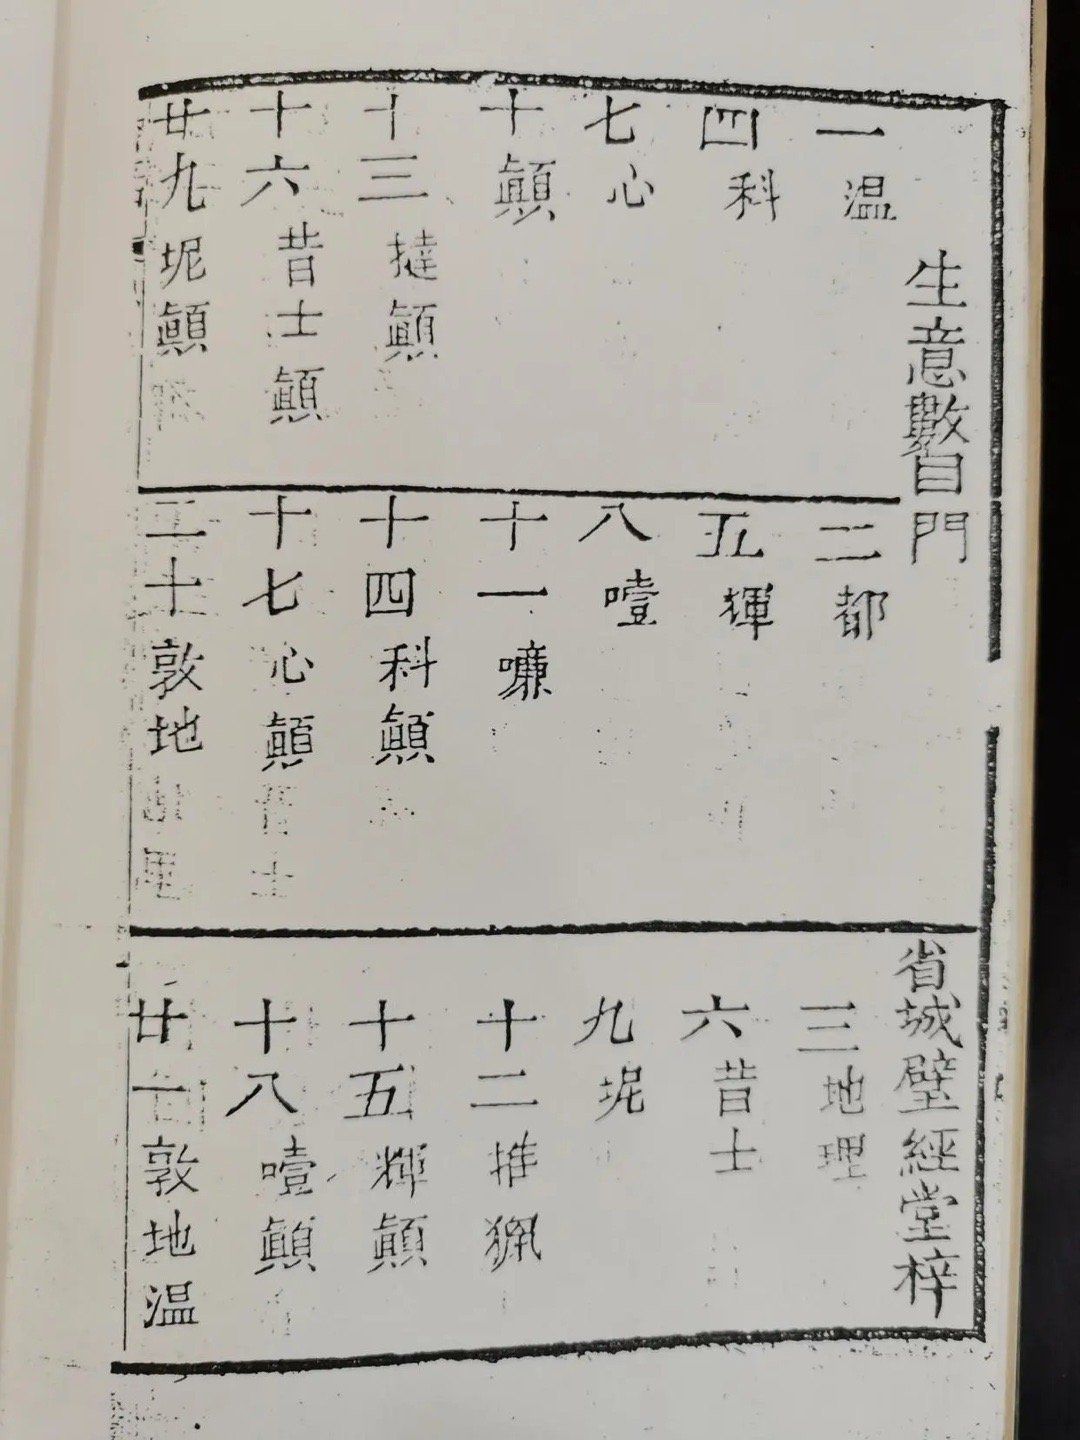 生意數目門
省城璧經堂梓
一温
二都
三地理
四科
五輝
六昔士
七心
八噎
九坭
十顛
十一嚤
十二推猟
十三撻顛
十四科顛
十五輝顛
十六昔士顛
十七心顛
十八噎顛
廿九坭顛
二十敦地
廿一敦地温